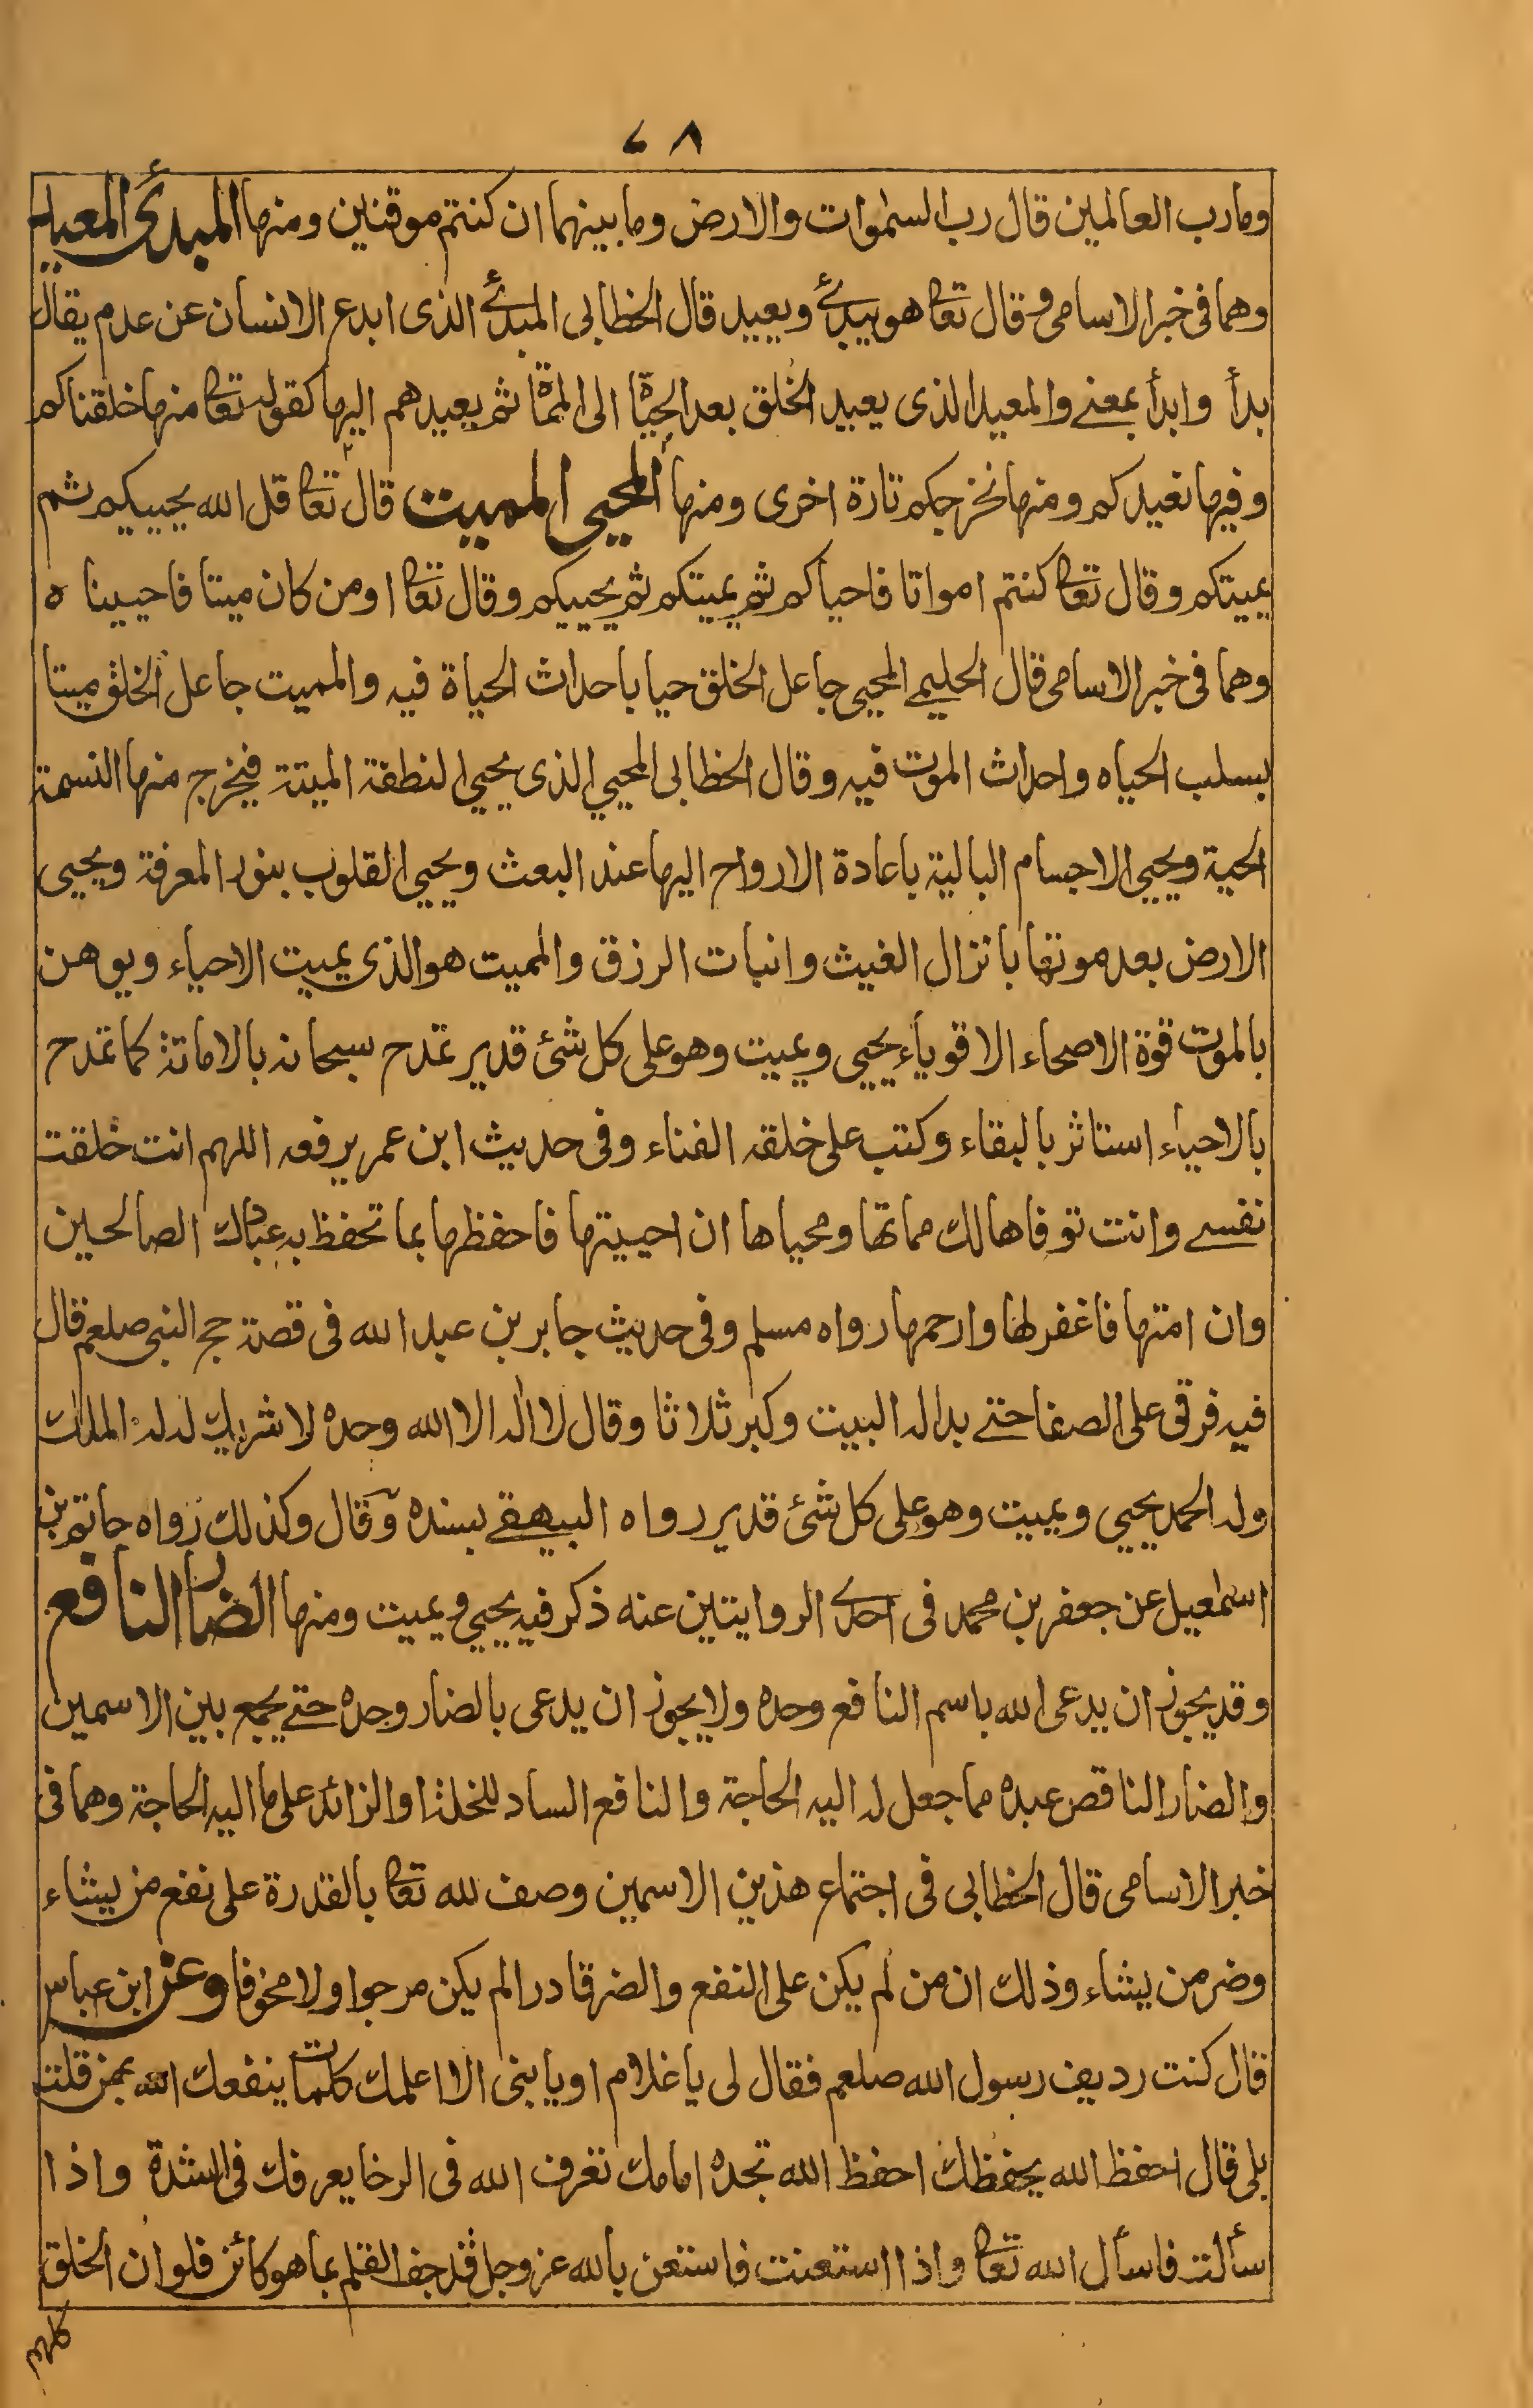 ٦٨
ومارب العالمين قال رب السموات والارض وما بينهما ان كنتم موقنين ومنها المبدئ المعيد
وهما فى خبر الاسامى وقال تعا هو يبدئ ويعيد قال الخطابى المبدئ الذى ابدع الانسان عن عدم يقال
بدأ وابدأ بمعنے والمعيد الذى يعيد الخلق بعد الحيٰوة الى المماة ثم يعيدهم اليها كقوله تعا منها خلقناكم
وفيها نعيدكم ومنها نخرجكم تارة اخرى ومنها المحيى المميت قال تعا قل الله يحييكم ثم
يميتكم وقال تعا كنتم امواتا فاحياكم ثم يميتكم ثم يحييكم وقال تعا اومن كان ميتا فاحييناه
وهما فى خبر الاسامى قال الحليمے المحيى جاعل الخلق حيا باحداث الحياة فيه والمميت جاعل الخلق ميتا
بسلب الحياه واحداث الموت فيه وقال الخطابى المحيي الذى يحيي النطفة الميتة فيخرج منها النسمة
الحية ويحيي الاجسام البالية باعادة الارواح اليها عند البعث ويحيي القلوب بنور المعرفة ويحيى
الارض بعد موتها بانزال الغيث وانبات الرزق والمميت هو الذى يميت الاحياء ويوهن
بالموت قوة الاصحاء الاقوياء يحيى ويميت وهو على كل شئ قدير تمدح سبحانه بالاماتة كما تمدح
بالاحياء استاثر بالبقاء وكتب على خلقه الفناء وفى حديث ابن عمر يرفعه اللهم انت خلقت
نفسے وانت توفاها لك مماتها ومحياها ان احييتها فاحفظها بما تحفظ به عبادك الصالحين
وان امتها فاغفر لها وارحمها رواه مسلم وفى حديث جابر بن عبد الله فى قصة حج النبى صلعم قال
فيه فرقى على الصفا حتے بدا له البيت وكبر ثلاثا وقال لا اله الا الله وحده لا شريك له له الملك
وله الحمد يحيي ويميت وهو على كل شئ قدير رواه البيهقے بسنده وقال وكذلك رواه حاتم بن
اسمٰعيل عن جعفر بن محمد فى احدے الروايتين عنه ذكر فيه يحيي ويميت ومنها الضار النافع
وقد يجوز ان يدعى الله باسم النافع وحده ولا يجوز ان يدعى بالضار وحده حتے يجمع بين الاسمين
والضار الناقص عبده مما جعل له اليه الحاجة والنافع الساد للخلة او الزائد على ما اليه الحاجة وهما فى
خبر الاسامى قال الخطابى فى اجتماع هذين الاسمين وصف لله تعا بالقدرة على نفع من يشاء
وضر من يشاء وذلك ان من لم يكن على النفع والضر قادرا لم يكن مرجوا ولا مخوفا وعن ابن عباس
قال كنت رديف رسول الله صلعم فقال لى يا غلام او يا بنى الا اعلمك كلمات ينفعك الله بهن قلت
بلى قال احفظ الله يحفظك احفظ الله تجده امامك تعرف الله فى الرخا يعرفك فى الشدة واذا
سألت فاسأل الله تعا واذا استعنت فاستعن بالله عز وجل قد جف القلم بما هو كائن فلو ان الخلق
كلهم